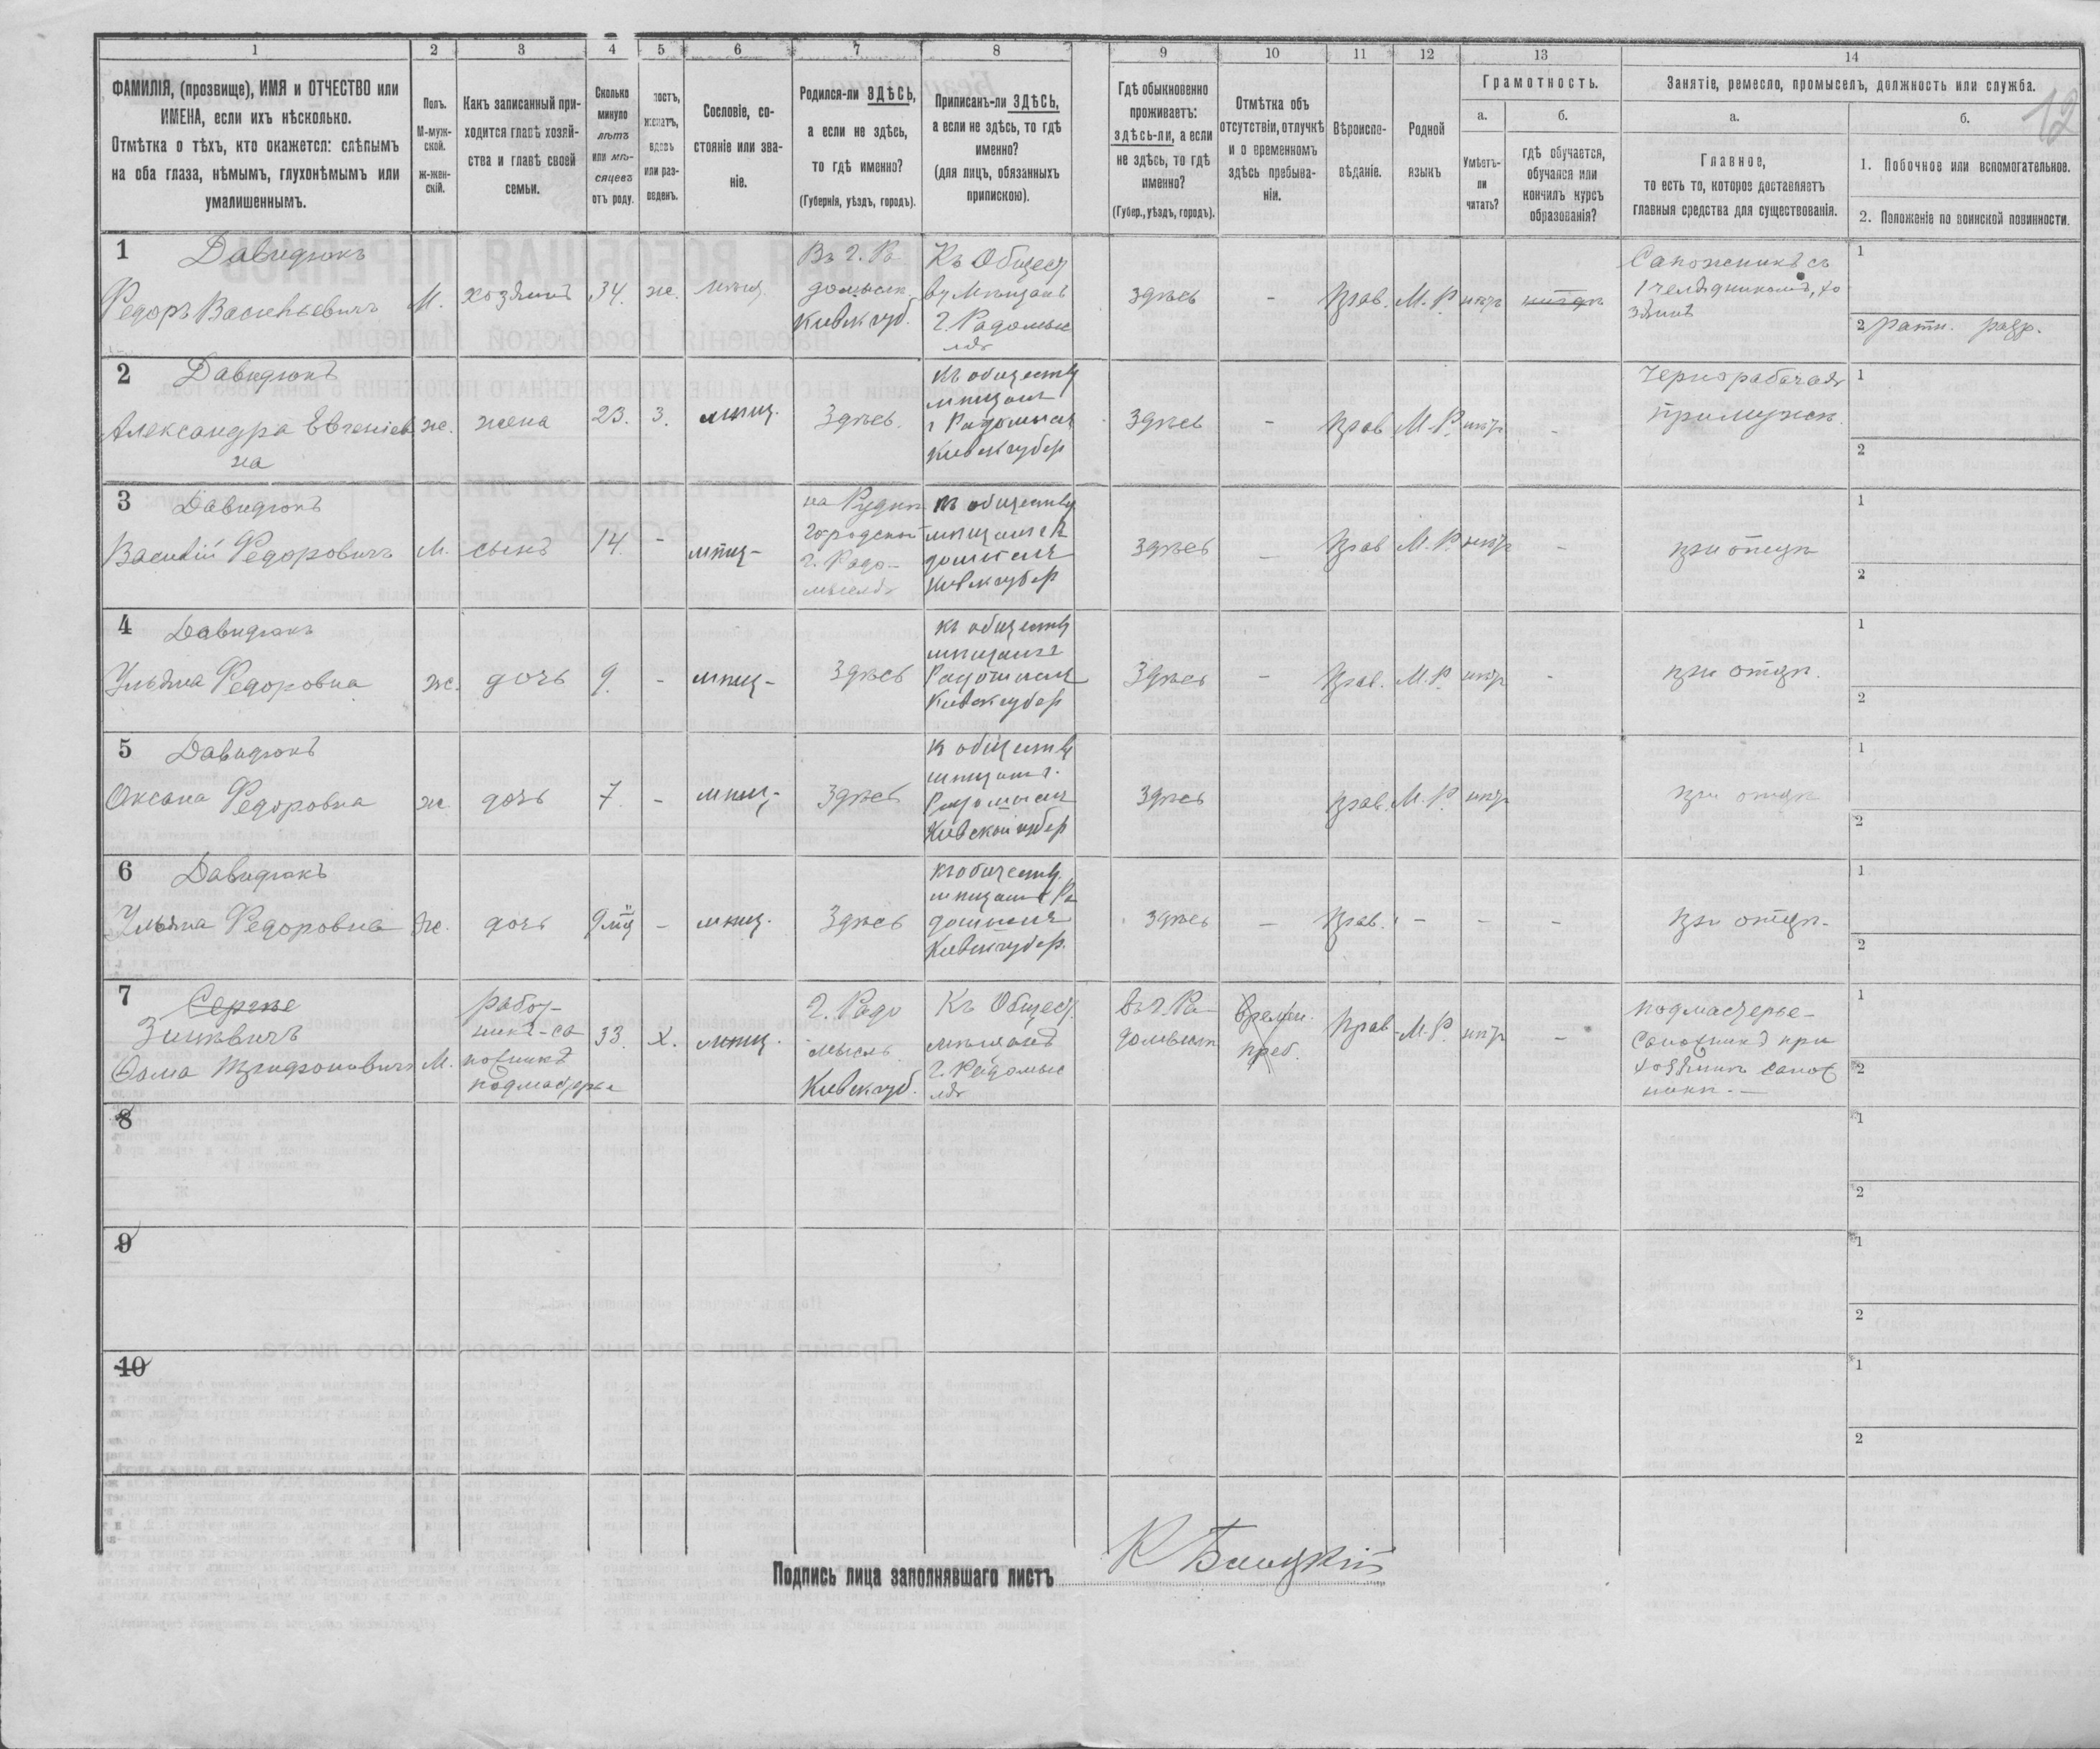 1 2 3 4 5 6 7 8 9 10 11 12 13 14
12
ФАМИЛІЯ, (прозвище), ИМЯ и ОТЧЕСТВО или
ИМЕНА, если ихъ нѣсколько.
Отмѣтка о тѣхъ, кто окажется: слѣпымъ
на оба глаза, нѣмымъ, глухонѣмымъ или
умалишеннымъ.
Полъ.
М-муж-
ской.
ж-жен-
скій.
Какъ записанный при-
ходится главѣ хозяй-
ства и главѣ своей
семьи.
Сколько
минуло
лѣтъ
или мѣ-
сяцевъ
отъ роду.
постъ,
женатъ,
вдовъ
или раз-
веденъ.
Сословіе, со-
стояніе или зва-
ніе.
Родился-ли ЗДѢСЬ,
а если не здѣсь,
то гдѣ именно?
(Губернія, уѣздъ, городъ).
Приписанъ-ли ЗДѢСЬ,
а если не здѣсь, то гдѣ
именно?
(для лицъ, обязанныхъ
припискою).
Гдѣ обыкновенно
проживаетъ:
здѣсь-ли, а если
не здѣсь, то гдѣ
именно?
(Губер., уѣздъ, городъ).
Отмѣтка объ
отсутствіи, отлучкѣ
и о временномъ
здѣсь пребыва-
ніи.
Вѣроиспо-
вѣданіе.
Родной
языкъ
Грамотность.
а.
Умѣетъ-
ли
читать?
б.
гдѣ обучается,
обучался или
кончилъ курсъ
образованія?
Занятіе, ремесло, промыселъ, должность или служба.
а.
Главное,
то есть то, которое доставляетъ
главныя средства для существованія.
б.
1. Побочное или вспомогательное.
2. Положеніе по воинской повинности.
1 Давидюкъ
Федоръ Васильевичъ
М.
хозяинъ
34.
же.
мѣщ.
Въ г. Ра
домысл.
Киевск губ.
Къ Общест
ву Мѣщанъ
г. Радомыс
ля
здѣсь
-
Прав.
М. Р.
нѣтъ
Сапожникъ съ
1 челядникомъ, хо
зяинъ
1
2 ратн. разр.
2 Давидюкъ
Александра Евгеніев
на
же.
жена
23.
з.
мѣщ.
Здѣсь.
къ обществу
мѣщанъ
г Радомысля
Киевск губер
Здѣсь
-
Прав
М. Р.
нѣтъ
-
Чернорабочая
при мужѣ.
1
2
3 Давидюкъ
Василій Федоровичъ
М.
сынъ
14.
-
мѣщ-
на Рудни
городской
г. Радо-
мысля
къ обществу
Киевск губер
здѣсь
-
Прав
М. Р.
нѣтъ
-
при отцѣ
1
2
4 Давидюкъ
Ульяна Федоровна
же.
дочь
9.
-
мѣщ-
Здѣсь
къ обществу
мѣщанъ г
Радомысля
Киевск губер
Здѣсь
-
Прав.
М. Р.
нѣтъ
-
при отцѣ.
1
2
5 Давидюкъ
Оксана Федоровна
же.
дочь
7
-
мѣщ-
Здѣсь
к обществу
мѣщан г.
Радомысля
Киевской губер
Здѣсь
Прав.
М. Р.
нѣтъ
при отцѣ
1
2
6 Давидюкъ
Ульяна Федоровна
Же.
дочь
9 мц
-
мѣщ.
Здѣсь
къ обществу.
мѣщан г Ра
домысля
Киевск губер.
здѣсь
-
Прав.
-
-
-
при отцѣ-
1
2
7 Сергѣе
Зинкевичъ
Фома Трифоновичъ
М.
работ-
никъ-са
пожникъ
подмастерье
33.
Х.
мѣщ.
г. Радо
мысль.
Киевск губ.
Къ Общест.
мѣщанъ
г. Радомыс
ля
въ г. Ра-
домыслѣ
времен.
преб.
Прав-
М. Р.
нѣтъ
-
подмастерье-
Сапожникъ при
хозяинѣ сапож
никѣ.-
1
2
8
1
2
9
1
2
10
1
2
Подпись лица заполнявшаго листъ